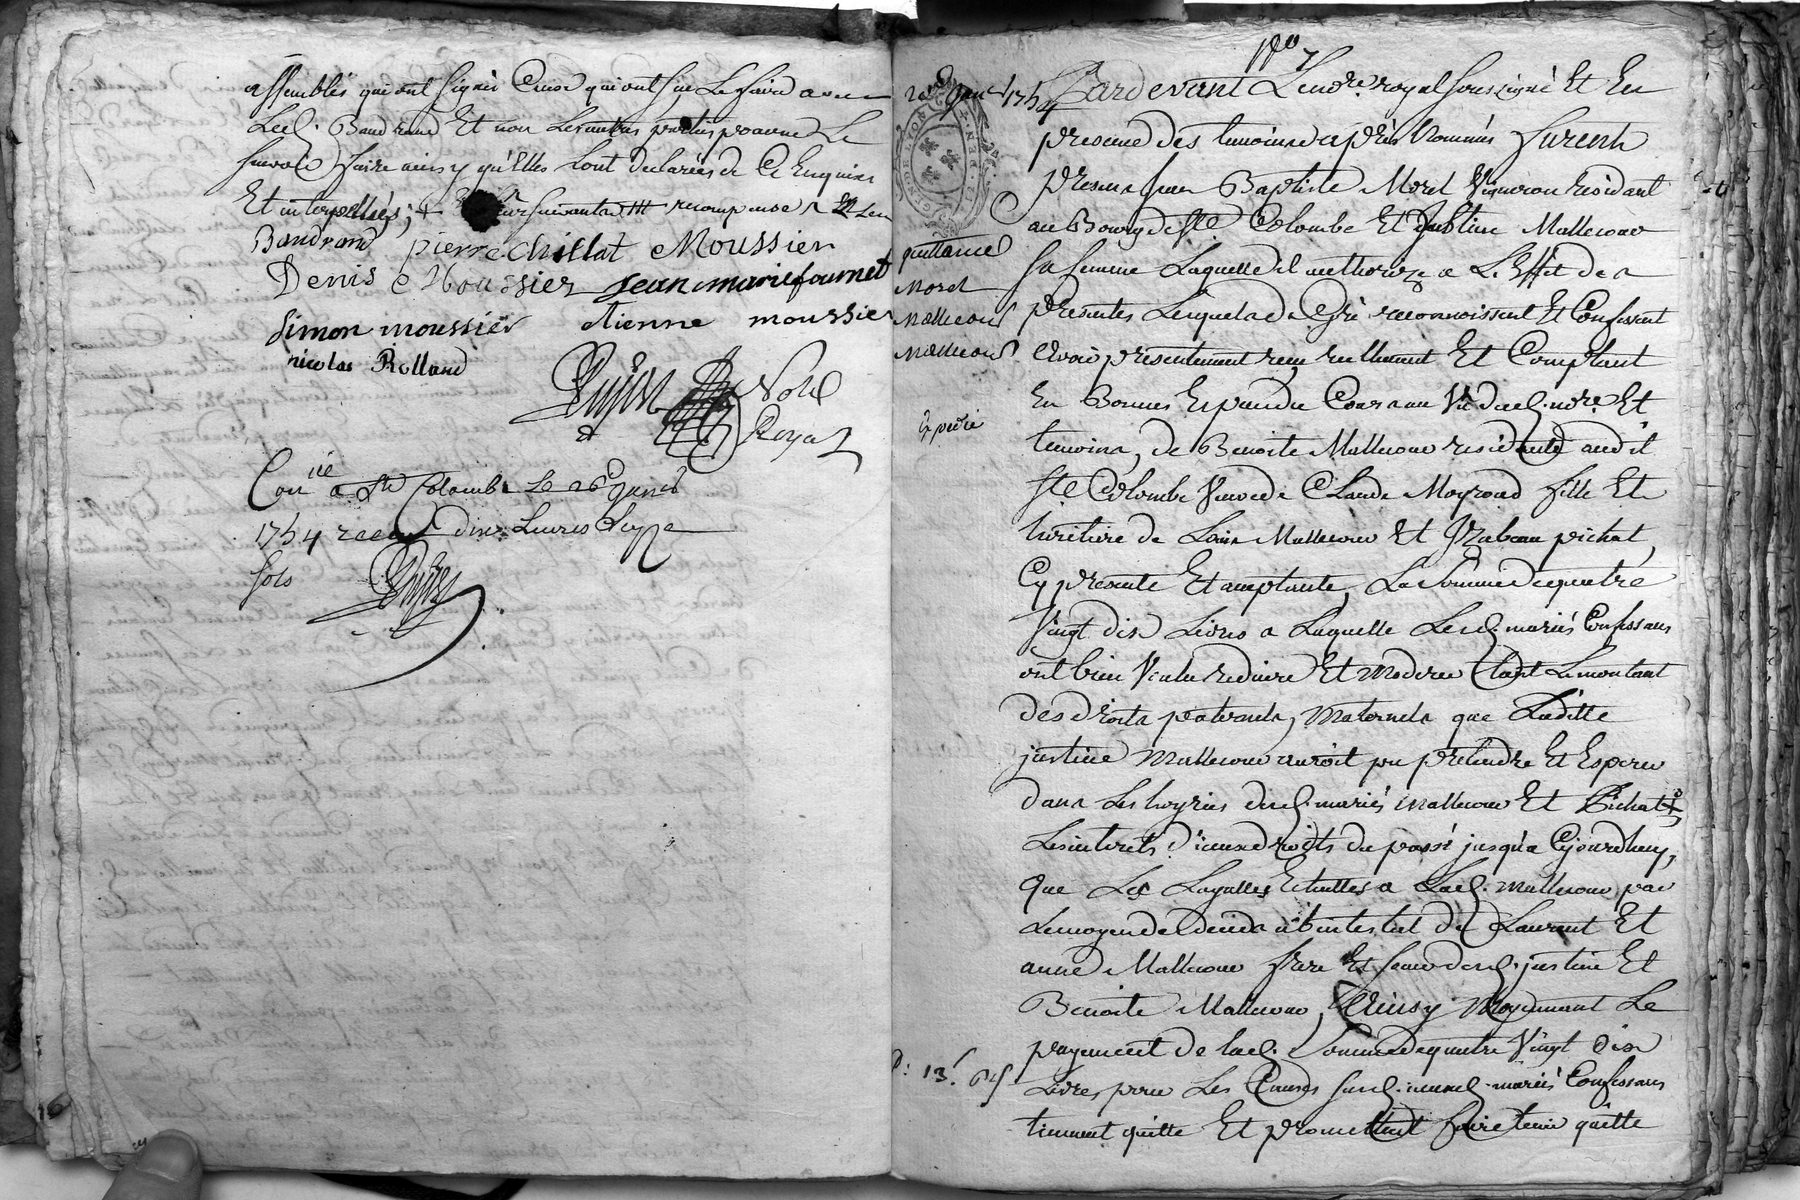 assemblés qui ont signés Ceux qui ont sçu Le faire avec
Led. Baudrand Et non Les autres parties pour ne Le
sçavoir faire ainsy qu'Elles L'ont declarées de Ce Enquises
Et interpellées; + recompense
Baudrand pierre chillat Moussier
Denis Moussier jean marie fournet
simon moussier etienne moussier
nicolas Rolland
Pupier Not.
Royal
Con.lé a Ste Colombe Le 26e Janer
1754 receu dix Livres seize
sols Pupier
Janer 1754
Pardevant Le nore. royal soussigné Et En
presence des temoins cy après Nommés furent
presents Jean Baptiste Morel Vigneron residant
au Bourg de Ste Colombe Et Justine Mallecour
sa femme Laquelle il authorize a L'Effet des
presentes Lesquels de Gré reconnoissent Et Confessent
avoir presentement reçu reellement Et Comptant
En Bonnes Espesces de Cours au Vû dud. nore. Et
temoins, de Benoite Mallecour residante audit
Ste Colombe Veuve de Claude Moyroud fille Et
heritiere de Louis Mallecour Et Izabeau pichat,
Cy presente Et acceptante, La Somme de quatre
Vingt dix Livres a Laquelle Lesd. mariés Confessans
ont bien Voulu reduire Et Moderer tant Le montant
des droits paternels, Maternels que Ladite
justine Mallecour auroit pu pretendre Et Esperer
dans Les hoyries desd. mariés Mallecour Et Pichat +
Les interets d'iceux droits du passé jusqu'a Cejourdhuy,
Que Les Legales Echutes a Lad. Mallecour par
Le moyen du decés abintestat de Laurent Et
anne Mallecour frere Et soeur desd. justine Et
Benoite Mallecour, Ainsy Moyennant Le
payement de Lad. Somme de quatre Vingt dix
Livres pour Les Causes susd. iceux mariés Confessans
tiennent quitte Et promettent faire tenir quitte
quittance
Morel
Mallecour
Mallecour
Expedié
13s